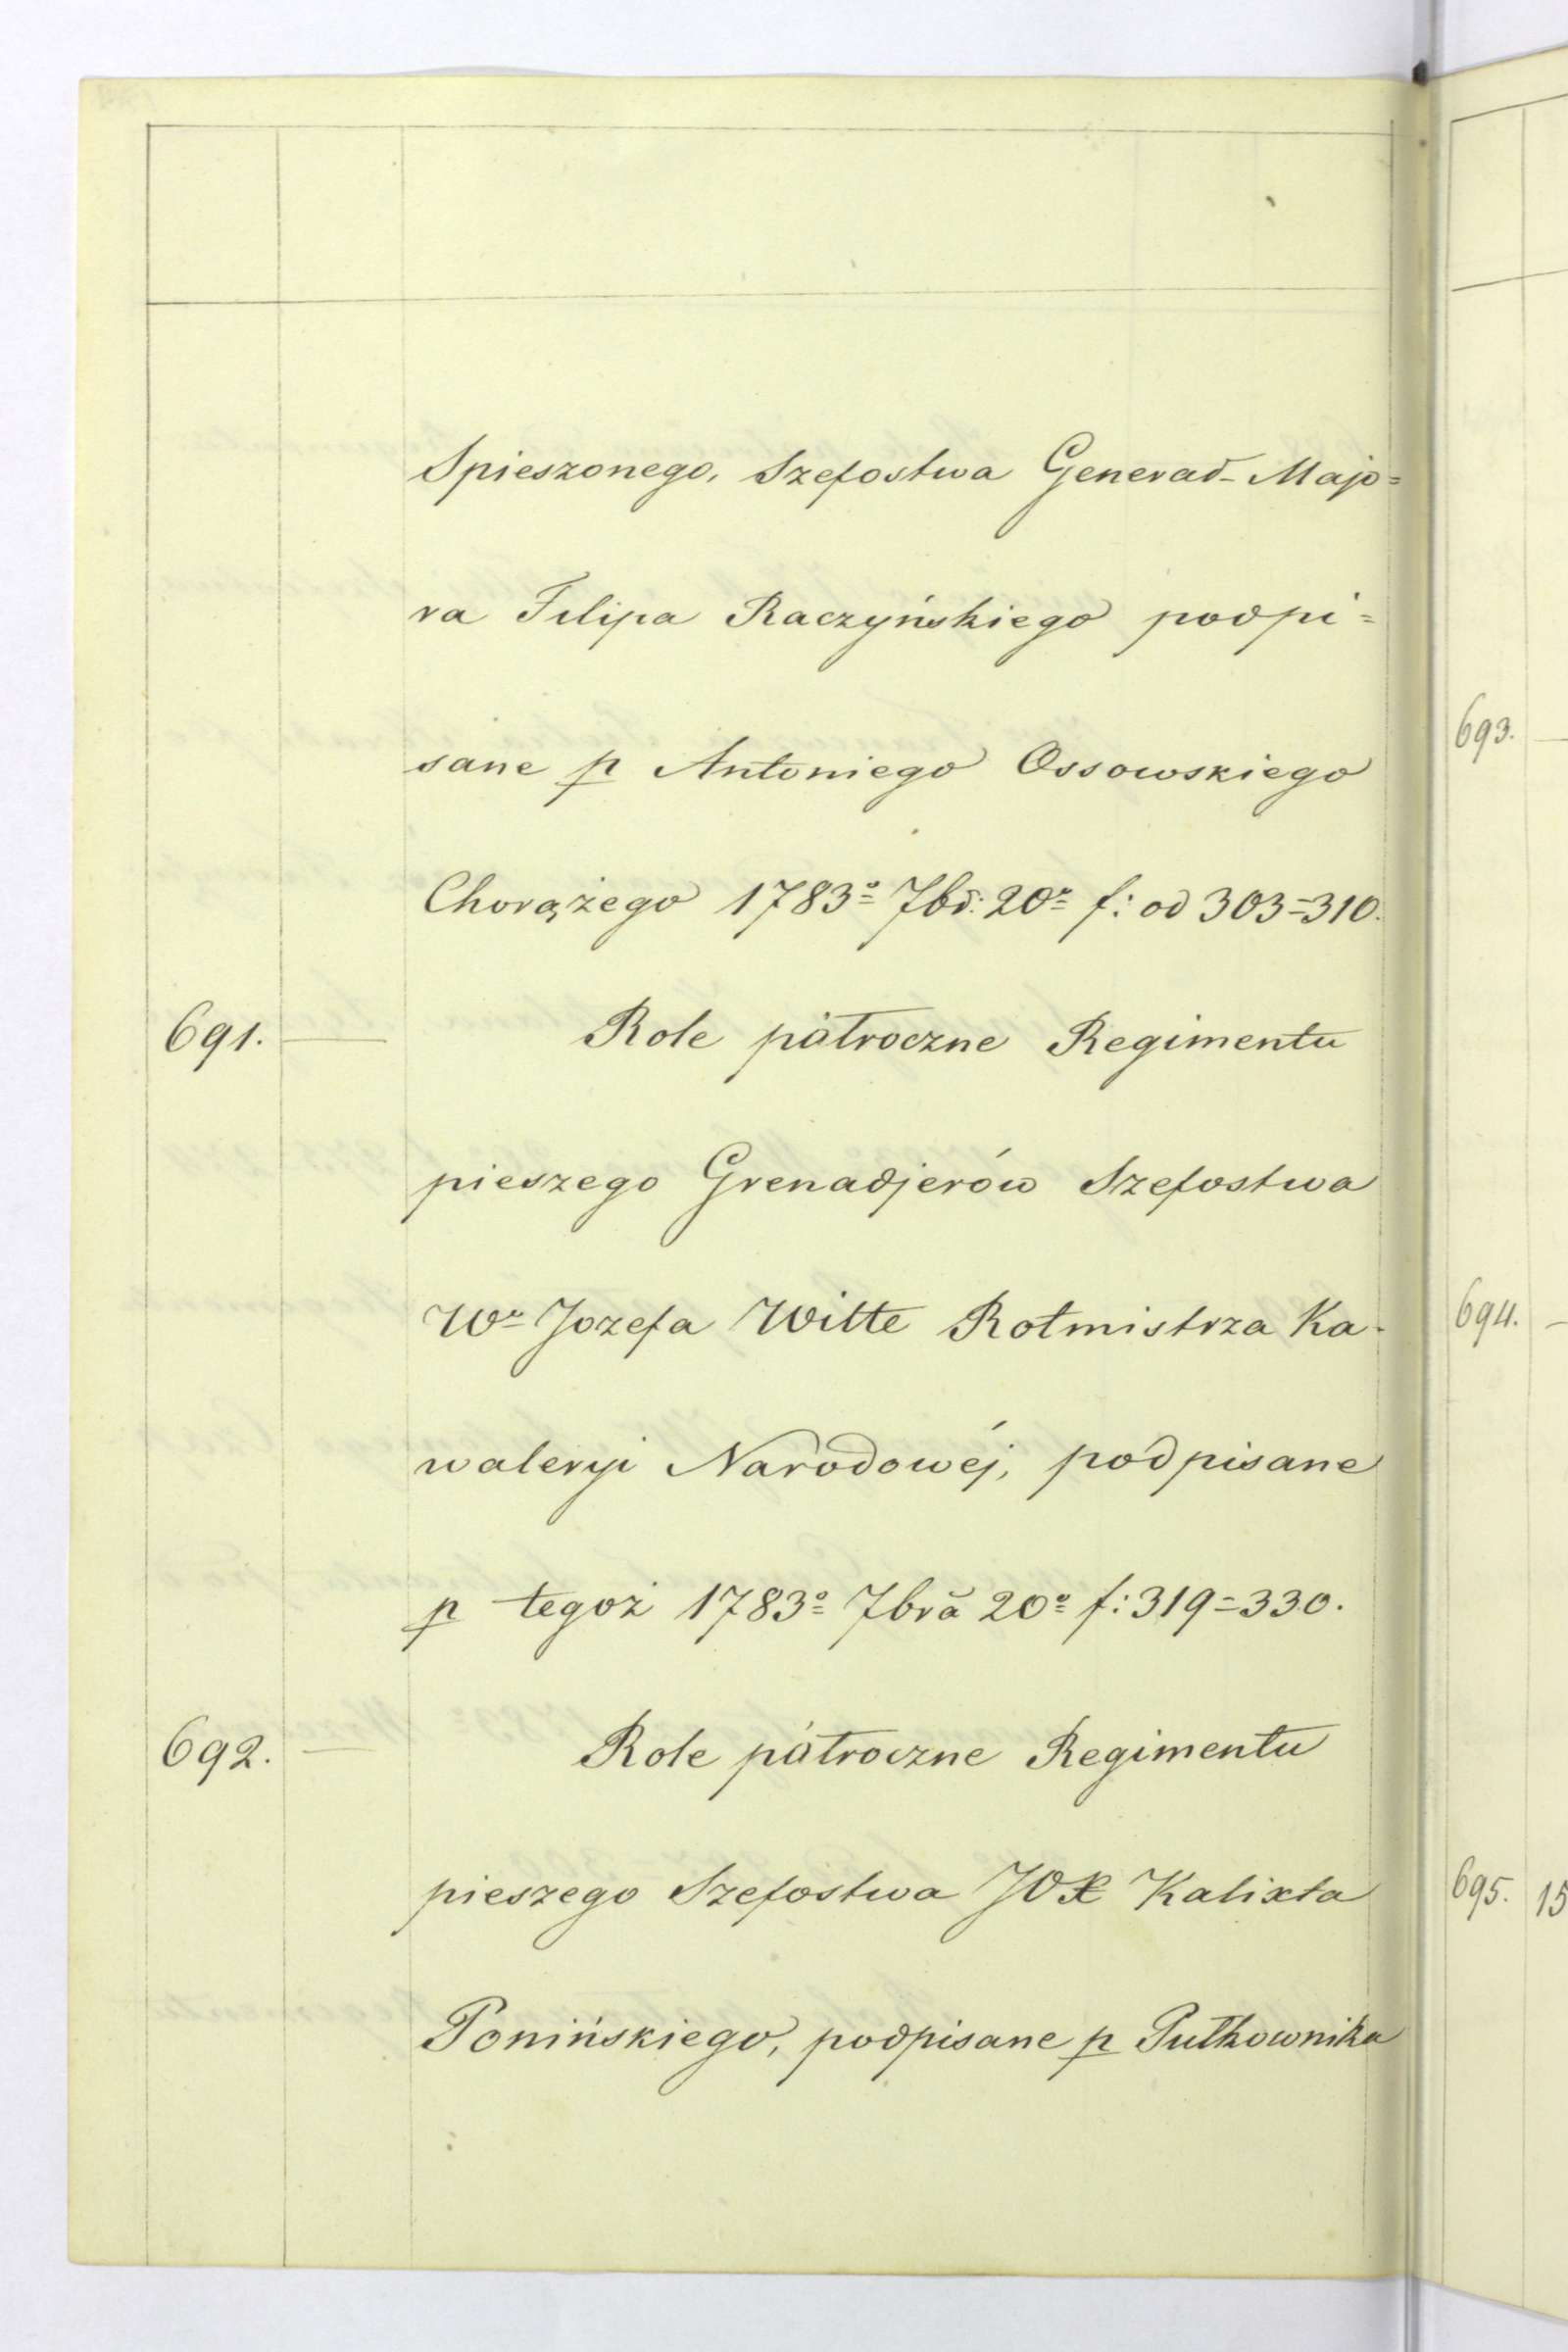 Spieszonego, Szefostwa Generał-Majo=
ra Filipa Raczyńskiego podpi=
sane p Antoniego Ossowskiego
Chorążego 1783º 7br: 20º f: od 303=310.
691. — Role półroczne Regimentu
pieszego Grenadjerów Szefostwa
Wº Jozefa Witte Rotmistrza Ka-
waleryi Narodowéj, podpisane
p tegoż 1783º 7bra 20º f: 319=330.
692. — Role półroczne Regimentu
pieszego Szefostwa JOX Kalixta
Ponińskiego, podpisane p Pułkownika
693. —
694. —
695. 15